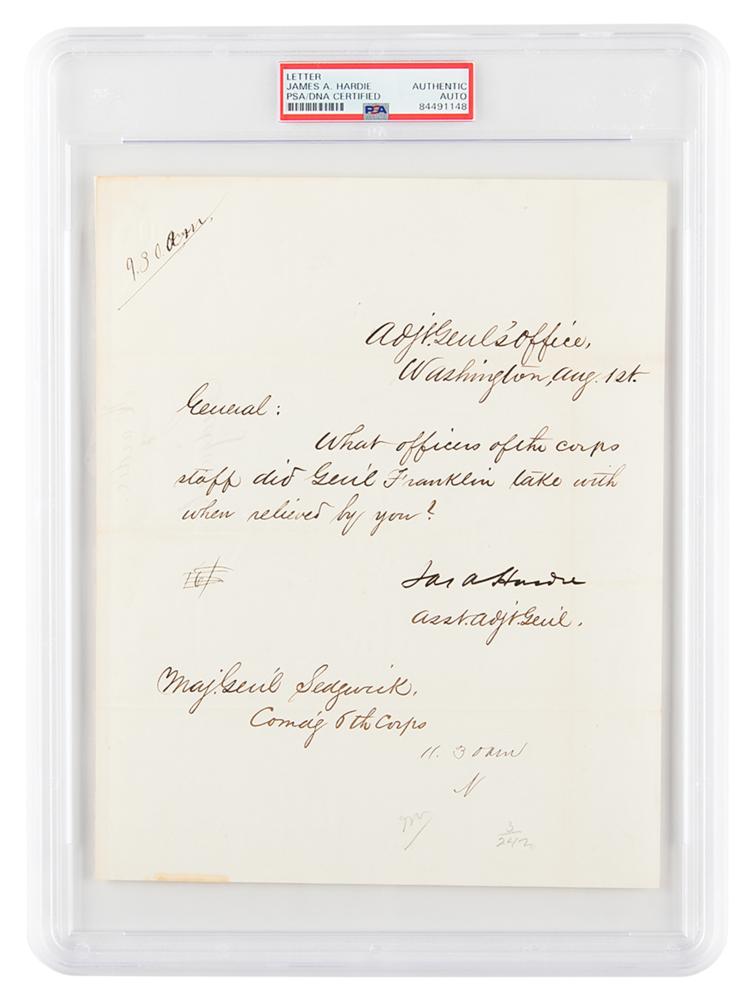 LETTER
JAMES A. HARDIE AUTHENTIC
PSA/DNA CERTIFIED AUTO
PSA 84491148
9.30 am.
Adjt. Genl's Office,
Washington, Aug. 1st.
General:
What officers of the corps
staff did Gen'l Franklin take with
when relieved by you?
Jas A Hardie
Asst. Adjt. Gen'l.
Maj. Gen'l Sedgwick,
Comd'g 6th Corps
11.30 am
N
3/242